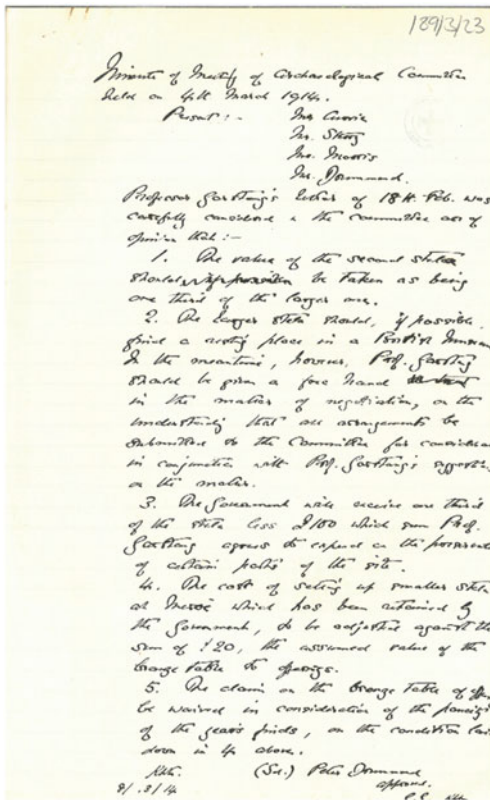 189/3/23
Minutes of Meeting of Archaeological Committee
held on 4th March 1914.
Present :- Mr Currie
Mr.
Mr. Morris
Mr. Drummond.
Professor Garstang's letter of 18th Feb. was
carefully considered & the committee are of
opinion that :-
1. The value of the second stela
should be taken as being
one third of the larger one.
2. The larger stela should, if possible,
find a resting place in a British Museum
In the meantime, however, Prof. Garstang
should be given a free hand
in the matter of negotiation, on the
understanding that all arrangements be
submitted to the Committee for considera
in conjunction with Prof. Garstang's suggest
on the matter.
3. The Government will receive one third
of the stela less £100 which sum Prof.
Garstang agrees to expend on the preservat
of certain parts of the site.
4. The cost of setting up smaller stela
at Meroë which has been retained by
the Government, to be adjusted against the
sum of £20, the assumed value of the
bronze table of offerings.
5. The claim on the bronze table of
be waived in consideration of the
of the year's finds, on the condition lai
down in 4 above.
(Sd.) Peter Drummond
8/.3/14 approved.